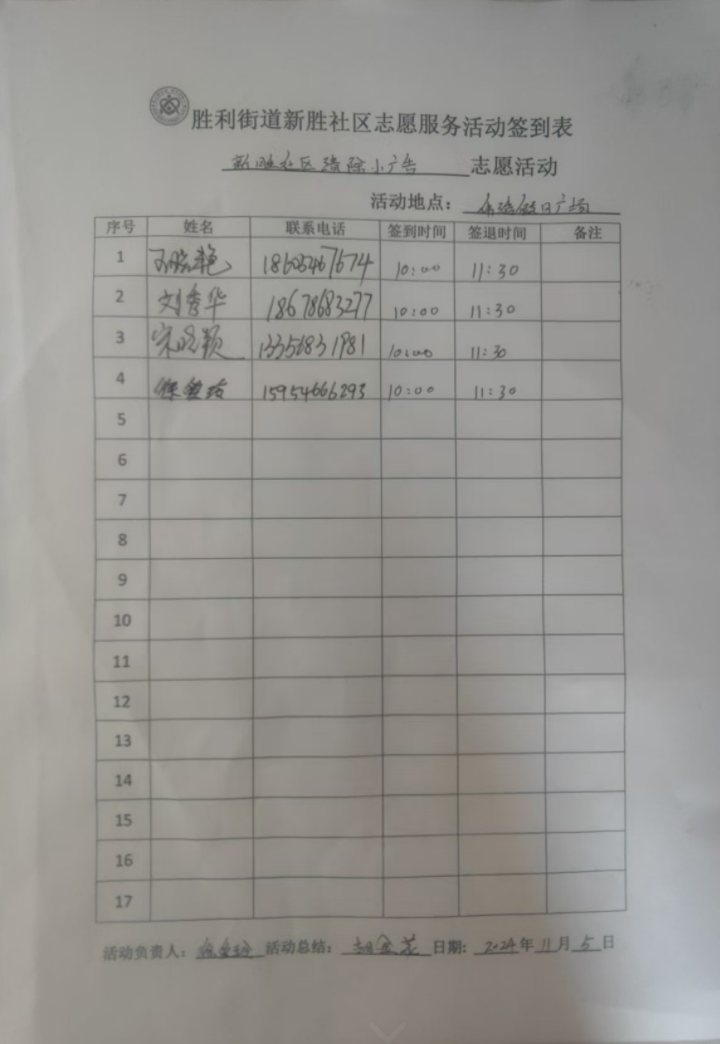 胜利街道新胜社区志愿服务活动签到表
新胜社区清除小广告 志愿活动
活动地点： 广场
序号 姓名 联系电话 签到时间 签退时间 备注
1 18605467674 10:00 11:30
2 刘秀华 18678683277 10:00 11:30
3 宋晓颖 13356831981 10:00 11:30
4 15954666293 10:00 11:30
5
6
7
8
9
10
11
12
13
14
15
16
17
活动负责人： 活动总结： 日期：2024年11月5日